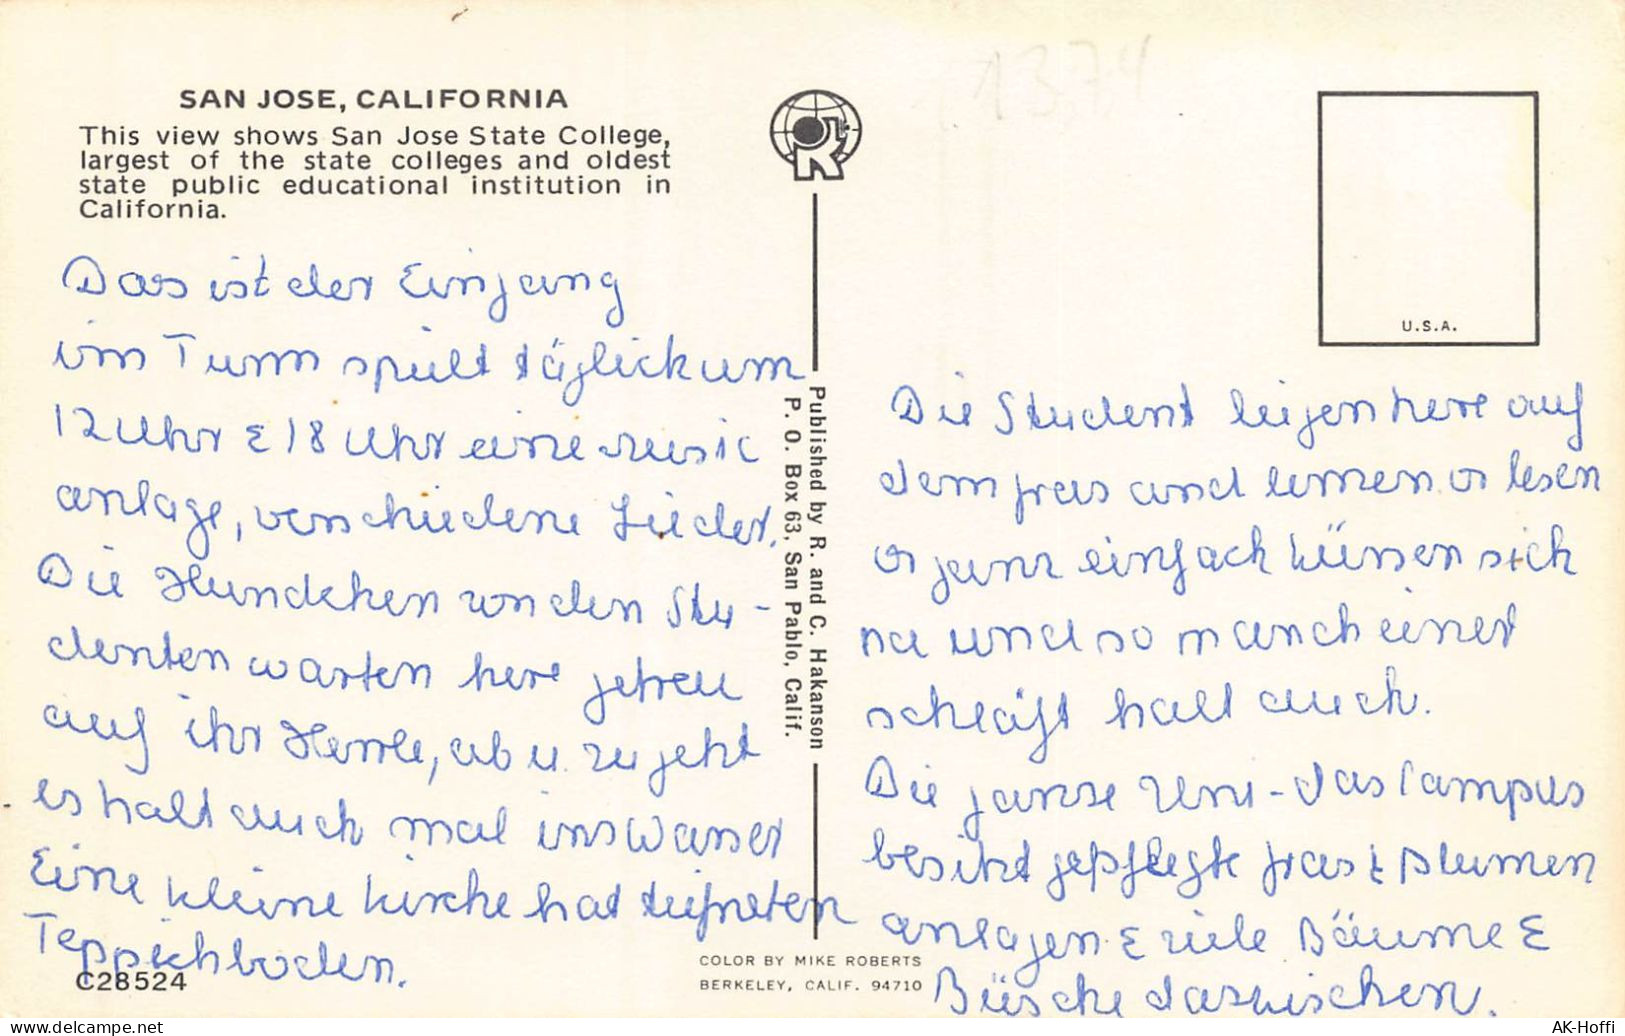 SAN JOSE, CALIFORNIA
This view shows San Jose State College,
largest of the state colleges and oldest
state public educational institution in
California.
Das ist der Eingang
im Turm spielt täglich um
12 Uhr & 18 Uhr eine music
anlage, verschiedene Lieder.
Die Hundchen von den Stu-
denten warten here getreu
auf ihr Herrle, ab u. zu geht
es halt auch mal ins Wasser
Eine kleine Kirche hat
Teppichboden.
C28524
1374
U.S.A.
Published by R. and C. Hakanson
P. O. Box 63, San Pablo, Calif.
COLOR BY MIKE ROBERTS
BERKELEY, CALIF. 94710
Die Student liegen here auf
dem gras und lernen or lesen
or ganz einfach küssen sich
na und so mancheiner
schläft halt auch.
Die ganze Uni - das Campus
besitzt gepflegte gras & Blumen
anlagen & viele Bäume &
Büsche dazwischen.
AK-Hoffi